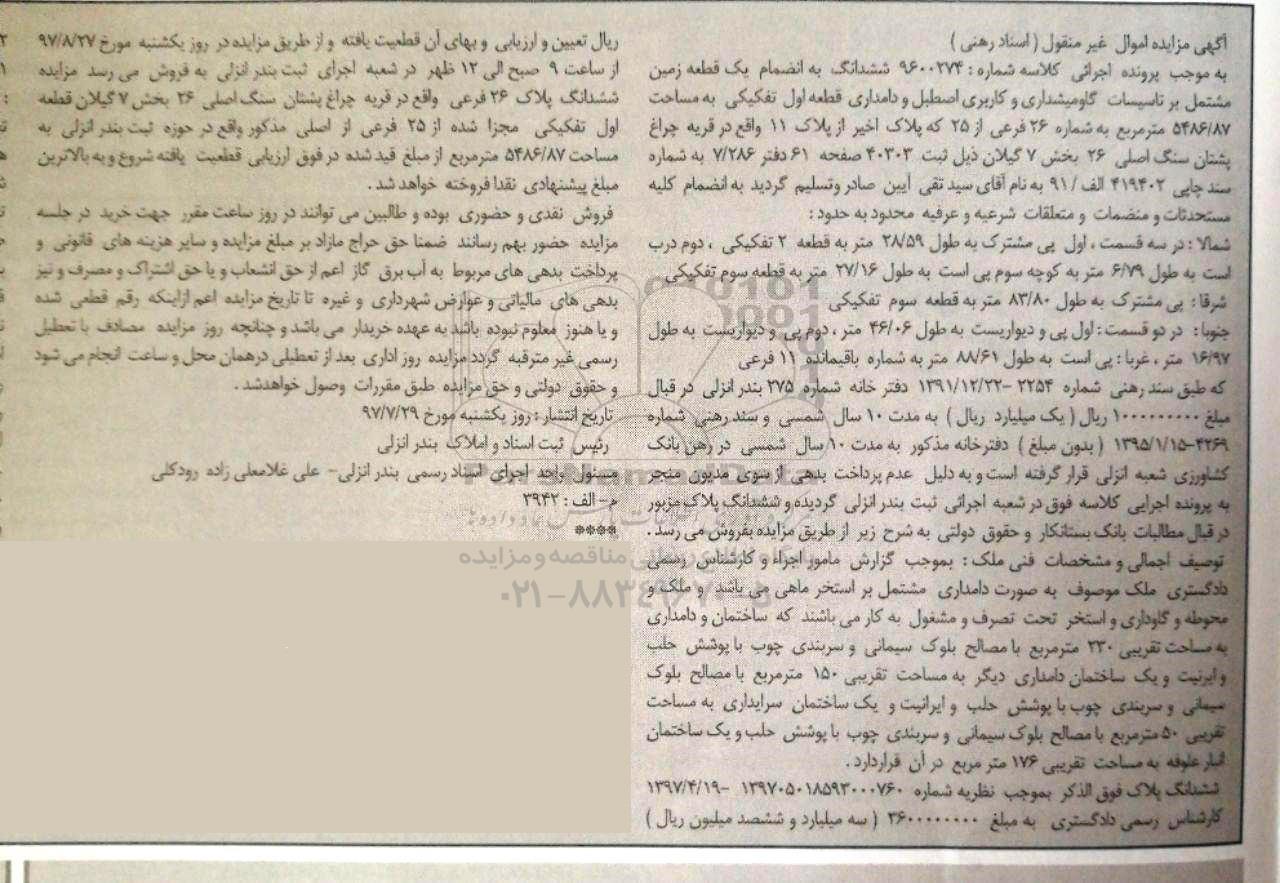 آگهی مزایده اموال غیر منقول ( اسناد رهنی )
به موجب پرونده اجرائی کلاسه شماره : ۹۶۰۰۲۷۴ ششدانگ به انضمام یک قطعه زمین
مشتمل بر تاسیسات گاومیشداری و کاربری اصطبل و دامداری قطعه اول تفکیکی به مساحت
۵۴۸۶/۸۷ مترمربع به شماره ۲۶ فرعی از ۲۵ که پلاک اخیر از پلاک ۱۱ واقع در قریه چراغ
پشتان سنگ اصلی ۲۶ بخش ۷ گیلان ذیل ثبت ۴۰۳۰۳ صفحه ۶۱ دفتر ۷/۲۸۶ به شماره
سند چاپی ۴۱۹۴۰۲ الف / ۹۱ به نام آقای سید تقی آیین صادر وتسلیم گردید به انضمام کلیه
مستحدثات و منضمات و متعلقات شرعیه و عرفیه محدود به حدود :
شمالا : در سه قسمت ، اول پی مشترک به طول ۲۸/۵۹ متر به قطعه ۲ تفکیکی ، دوم درب
است به طول ۶/۷۹ متر به کوچه سوم پی است به طول ۲۷/۱۶ متر به قطعه سوم تفکیکی
شرقا : پی مشترک به طول ۸۳/۸۰ متر به قطعه سوم تفکیکی
جنوبا : در دو قسمت : اول پی و دیواریست به طول ۴۶/۰۶ متر ، دوم پی و دیواریست به طول
۱۶/۹۷ متر ، غربا : پی است به طول ۸۸/۶۱ متر به شماره باقیمانده ۱۱ فرعی
که طبق سند رهنی شماره ۲۲۵۴ -۱۳۹۱/۱۲/۲۲ دفتر خانه شماره ۲۷۵ بندر انزلی در قبال
مبلغ ۱۰۰۰۰۰۰۰۰۰ ریال ( یک میلیارد ریال ) به مدت ۱۰ سال شمسی و سند رهنی شماره
۴۲۶۹-۱۳۹۵/۱/۱۵ ( بدون مبلغ ) دفترخانه مذکور به مدت ۱۰ سال شمسی در رهن بانک
کشاورزی شعبه انزلی قرار گرفته است و به دلیل عدم پرداخت بدهی از سوی مدیون منجر
به پرونده اجرایی کلاسه فوق در شعبه اجرائی ثبت بندر انزلی گردیده و ششدانگ پلاک مزبور
در قبال مطالبات بانک بستانکار و حقوق دولتی به شرح زیر از طریق مزایده بفروش می رسد .
توصیف اجمالی و مشخصات فنی ملک : بموجب گزارش مامور اجراء و کارشناس رسمی
دادگستری ملک موصوف به صورت دامداری مشتمل بر استخر ماهی می باشد و ملک و
محوطه و گاوداری و استخر تحت تصرف و مشغول به کار می باشند که ساختمان و دامداری
به مساحت تقریبی ۲۳۰ مترمربع با مصالح بلوک سیمانی و سربندی چوب با پوشش حلب
و ایرنیت و یک ساختمان دامداری دیگر به مساحت تقریبی ۱۵۰ مترمربع با مصالح بلوک
سیمانی و سربندی چوب با پوشش حلب و ایرانیت و یک ساختمان سرایداری به مساحت
تقریبی ۵۰ مترمربع با مصالح بلوک سیمانی و سربندی چوب با پوشش حلب و یک ساختمان
انبار علوفه به مساحت تقریبی ۱۷۶ متر مربع در آن قراردارد .
ششدانگ پلاک فوق الذکر بموجب نظریه شماره ۱۳۹۷۰۵۰۱۸۵۹۳۰۰۰۷۶۰ -۱۳۹۷/۴/۱۹
کارشناس رسمی دادگستری به مبلغ ۳۶۰۰۰۰۰۰۰۰ ( سه میلیارد و ششصد میلیون ریال )
ریال تعیین و ارزیابی و بهای آن قطعیت یافته و از طریق مزایده در روز یکشنبه مورخ ۹۷/۸/۲۷
از ساعت ۹ صبح الی ۱۲ ظهر در شعبه اجرای ثبت بندر انزلی به فروش می رسد مزایده
ششدانگ پلاک ۲۶ فرعی واقع در قریه چراغ پشتان سنگ اصلی ۲۶ بخش ۷ گیلان قطعه
اول تفکیکی مجزا شده از ۲۵ فرعی از اصلی مذکور واقع در حوزه ثبت بندر انزلی به
مساحت ۵۴۸۶/۸۷ مترمربع از مبلغ قید شده در فوق ارزیابی قطعیت یافته شروع و به بالاترین
مبلغ پیشنهادی نقدا فروخته خواهد شد .
فروش نقدی و حضوری بوده و طالبین می توانند در روز ساعت مقرر جهت خرید در جلسه
مزایده حضور بهم رسانند ضمنا حق حراج مازاد بر مبلغ مزایده و سایر هزینه های قانونی و
پرداخت بدهی های مربوط به آب برق گاز اعم از حق انشعاب و یا حق اشتراک و مصرف و نیز
بدهی های مالیاتی و عوارض شهرداری و غیره تا تاریخ مزایده اعم ازاینکه رقم قطعی شده
و یا هنوز معلوم نبوده باشد به عهده خریدار می باشد و چنانچه روز مزایده مصادف با تعطیل
رسمی غیر مترقبه گردد مزایده روز اداری بعد از تعطیلی درهمان محل و ساعت انجام می شود
و حقوق دولتی و حق مزایده طبق مقررات وصول خواهدشد .
تاریخ انتشار : روز یکشنبه مورخ ۹۷/۷/۲۹
رئیس ثبت اسناد و املاک بندر انزلی
مسئول واحد اجرای اسناد رسمی بندر انزلی- علی غلامعلی زاده رودکلی
م - الف : ۳۹۴۲
****